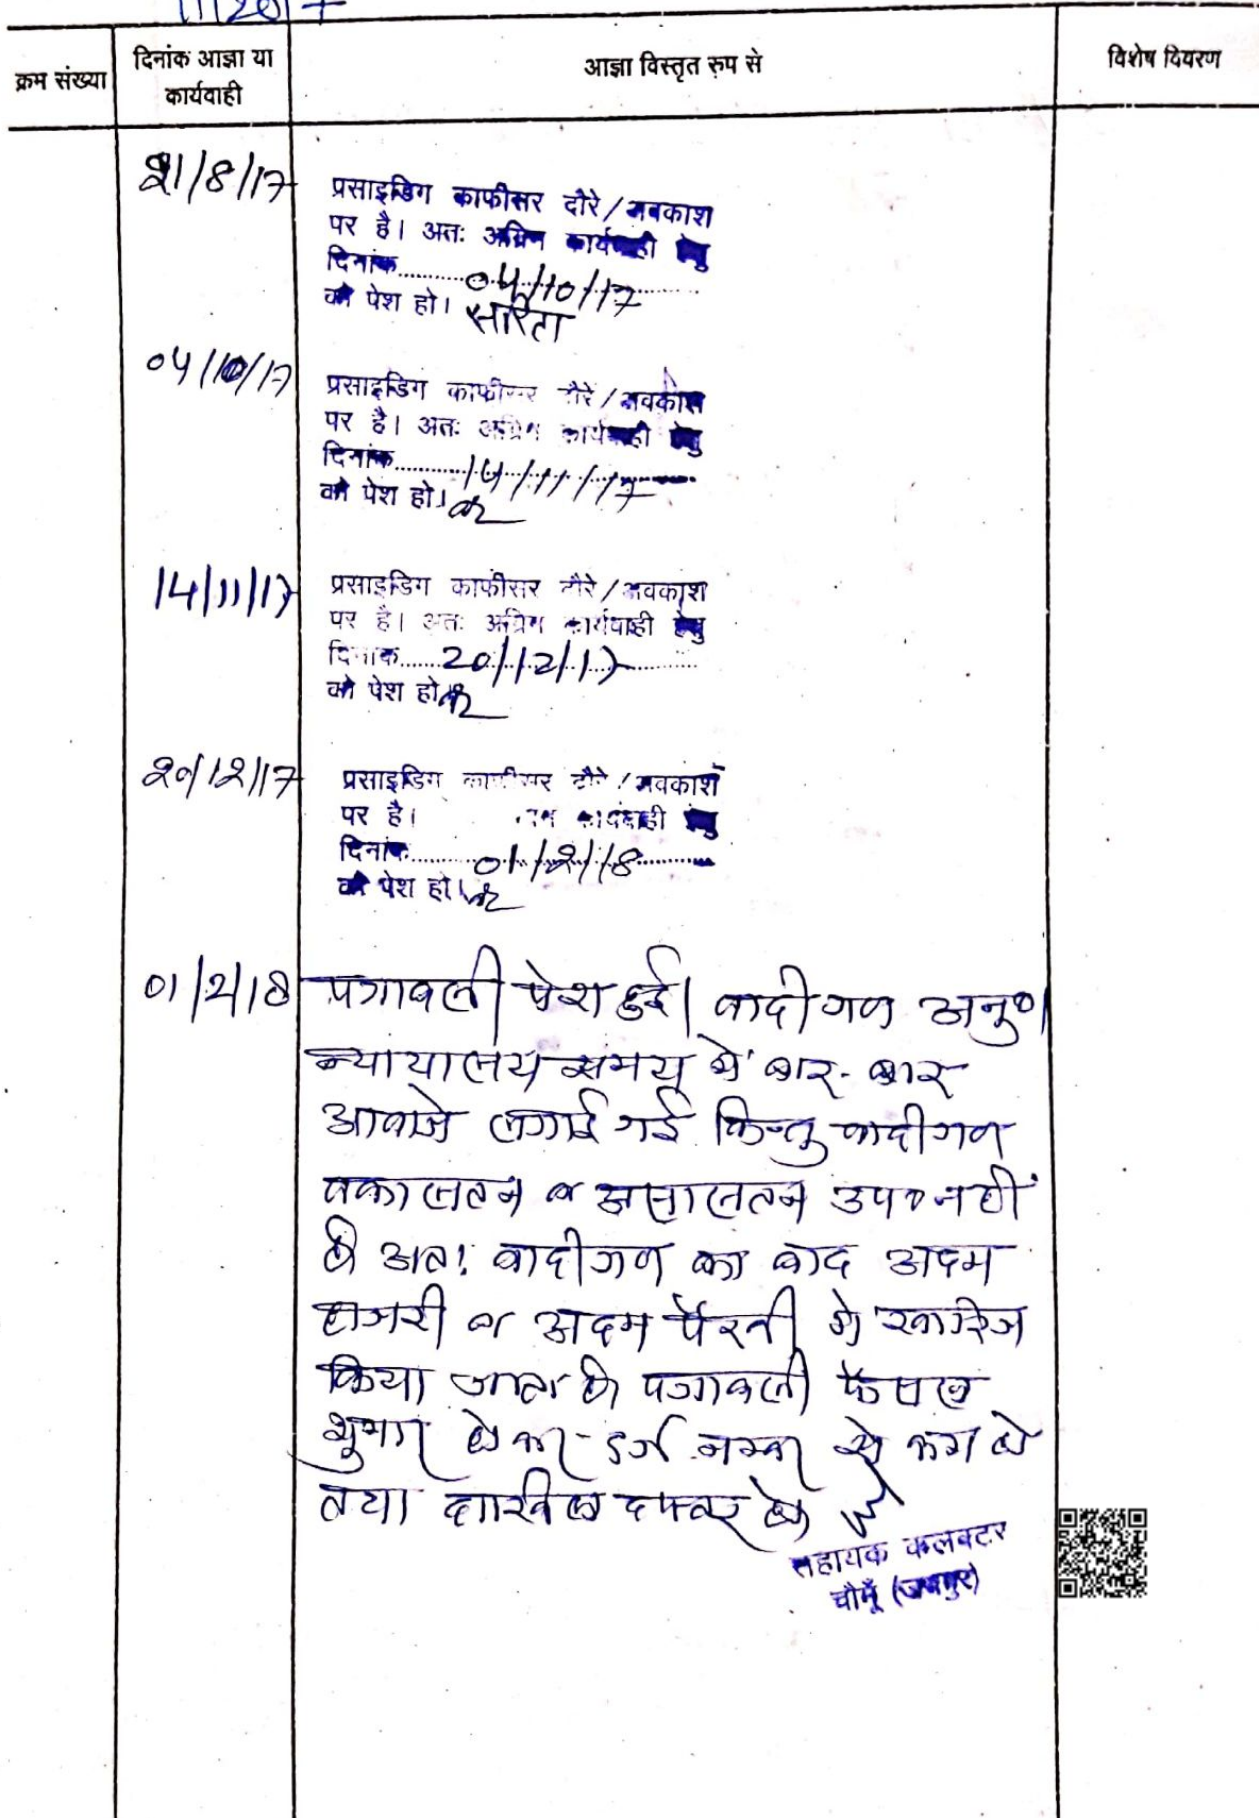 11/2017
क्रम संख्या
दिनांक आज्ञा या
कार्यवाही
आज्ञा विस्तृत रुप से
विशेष विवरण
21/8/17
प्रसाइडिग काफीसर दौरे/अवकाश
पर है। अतः अग्रिम कार्यवाही हेतु
दिनांक..........04/10/17..........
को पेश हो। सरिता
04/10/17
प्रसाइडिग काफीसर दौरे/अवकाश
पर है। अतः अग्रिम कार्यवाही हेतु
दिनांक..........14/11/17..........
को पेश हो।
14/11/17
प्रसाइडिग काफीसर दौरे/अवकाश
पर है। अतः अग्रिम कार्यवाही हेतु
दिनांक......20/12/17..........
को पेश हो
20/12/17
प्रसाइडिग काफीसर दौरे/अवकाश
पर है। कार्यवाही हेतु
दिनांक..........01/2/18..........
को पेश हो।
01/2/18
पत्रावली पेश हुई। वादीगण अनु०।
न्यायालय समय मे बार-बार
आवाजे लगाई गई किन्तु वादीगण
वकालतन व असालतन उप० नहीं
है अतः वादीगण का वाद अदम
हाजरी व अदम पैरवी मे खारिज
किया जाता है पत्रावली फैसल
शुमार होकर दर्ज नम्बर से कम हो
तथा दाखिल दफ्तर हो
सहायक कलक्टर
चौमूँ (जयपुर)